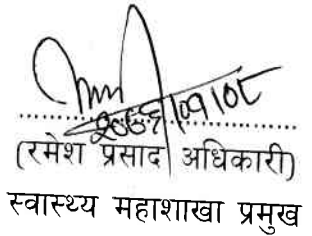 २०७६/०१/०८
(रमेश प्रसाद अधिकारी)
स्वास्थ्य महाशाखा प्रमुख